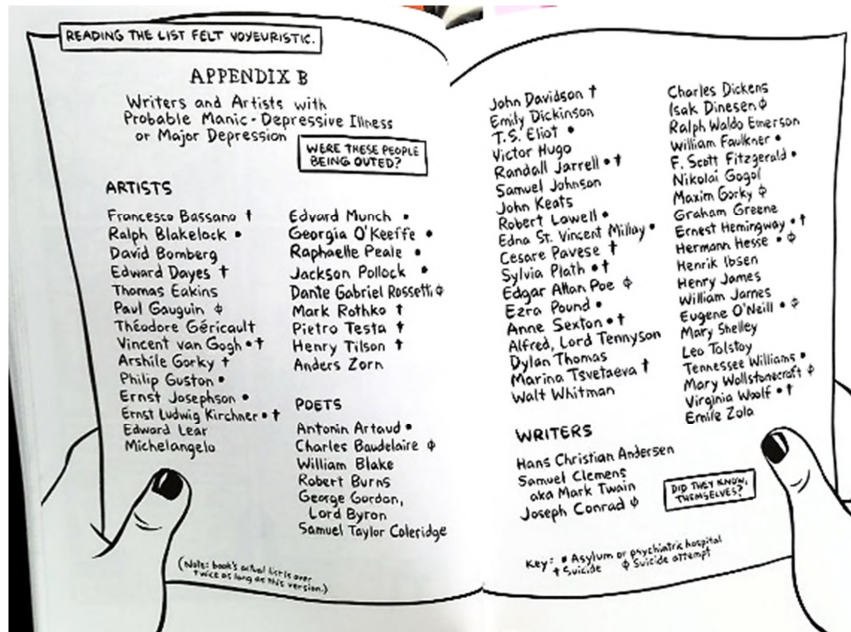 READING THE LIST FELT VOYEURISTIC.
APPENDIX B
Writers and Artists with
Probable Manic-Depressive Illness
or Major Depression
WERE THESE PEOPLE
BEING OUTED?
ARTISTS
Francesco Bassano †
Ralph Blakelock •
David Bomberg
Edward Dayes †
Thomas Eakins
Paul Gauguin ϕ
Théodore Géricault
Vincent van Gogh • †
Arshile Gorky †
Philip Guston •
Ernst Josephson •
Ernst Ludwig Kirchner • †
Edward Lear
Michelangelo
Edvard Munch •
Georgia O'Keeffe •
Raphaelle Peale •
Jackson Pollock •
Dante Gabriel Rossetti ϕ
Mark Rothko †
Pietro Testa †
Henry Tilson †
Anders Zorn
POETS
Antonin Artaud •
Charles Baudelaire ϕ
William Blake
Robert Burns
George Gordon,
Lord Byron
Samuel Taylor Coleridge
(Note: book's actual list is over
twice as long as this version.)
John Davidson †
Emily Dickinson
T.S. Eliot •
Victor Hugo
Randall Jarrell • †
Samuel Johnson
John Keats
Robert Lowell •
Edna St. Vincent Millay •
Cesare Pavese †
Sylvia Plath • †
Edgar Allan Poe ϕ
Ezra Pound •
Anne Sexton • †
Alfred, Lord Tennyson
Dylan Thomas
Marina Tsvetaeva †
Walt Whitman
WRITERS
Hans Christian Andersen
Samuel Clemens
aka Mark Twain
Joseph Conrad ϕ
Charles Dickens
Isak Dinesen ϕ
Ralph Waldo Emerson
William Faulkner •
F. Scott Fitzgerald •
Nikolai Gogol
Maxim Gorky ϕ
Graham Greene
Ernest Hemingway • †
Hermann Hesse • ϕ
Henrik Ibsen
Henry James
William James
Eugene O'Neill • ϕ
Mary Shelley
Leo Tolstoy
Tennessee Williams •
Mary Wollstonecraft ϕ
Virginia Woolf • †
Emile Zola
DID THEY KNOW,
THEMSELVES?
Key: • Asylum or psychiatric hospital
† Suicide ϕ Suicide attempt